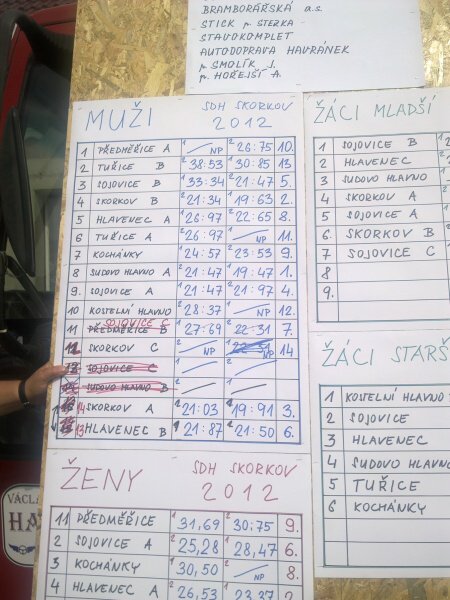 BRAMBORÁŘSKÁ a.s.
STICK p. STERKA
STAVOKOMPLET
AUTODOPRAVA HAVRÁNEK
p. SMOLÍK J.
p. HOŘEJŠÍ A.
MUŽI SDH SKORKOV 2012
1 PŘEDMĚŘICE A 1 / NP 2 26:75 10.
2 TUŘICE B 2 38:53 1 30:85 13.
3 SOJOVICE B 1 33:34 2 21:47 5.
4 SKORKOV B 2 21:34 1 19:63 2.
5 HLAVENEC A 1 26:97 2 22:65 8.
6 TUŘICE A 2 26:97 1 / NP 11.
7 KOCHÁNKY 1 24:57 2 23:53 9.
8 SUDOVO HLAVNO A 2 21:47 1 19:47 1.
9. SOJOVICE A 1 21:47 2 21:97 4.
10 KOSTELNÍ HLAVNO 2 28:37 1 / NP 12.
SOJOVICE C
11 PŘEDMĚŘICE B 1 27:69 2 22:31 7.
SKORKOV C 2 / NP 22:31 NP 14
SOJOVICE C 1 / 2 /
SUDOVO HLAVNO B 2 / 1 /
14 SKORKOV A 2 21:03 1 19:91 3.
13 HLAVENEC B 1 21:87 2 21:50 6.
ŽENY SDH SKORKOV 2012
1 PŘEDMĚŘICE 1 31,69 2 30:75 9.
2 SOJOVICE A 2 25,28 1 28,47 6.
3 KOCHÁNKY 1 30,50 2 / NP 8.
4 HLAVENEC A 2 26,53 1 23,27 2.
ŽÁCI MLADŠÍ
1 SOJOVICE B
2 HLAVENEC
3 SUDOVO HLAVNO
4 SKORKOV A
5 SOJOVICE A
6. SKORKOV B
7 SOJOVICE C
8
9.
ŽÁCI STARŠ
1 KOSTELNÍ HLAVNO
2 SOJOVICE
3 HLAVENEC
4 SUDOVO HLAVNO
5 TUŘICE
6 KOCHÁNKY
VÁCLA
HA